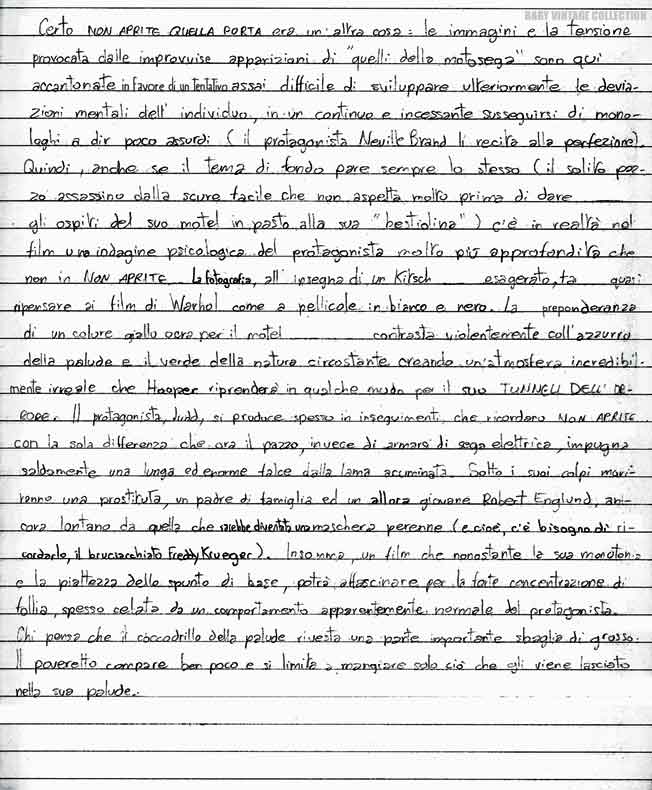 BABY VINTAGE COLLECTION
Certo NON APRITE QUELLA PORTA era un'altra cosa: le immagini e la tensione
provocata dalle improvvise apparizioni di "quelli della motosega" sono qui
accantonate in favore di un tentativo assai difficile di sviluppare ulteriormente le devia-
zioni mentali dell'individuo, in un continuo e incessante susseguirsi di mono-
loghi a dir poco assurdi (il protagonista Neville Brand li recita alla perfezione).
Quindi, anche se il tema di fondo pare sempre lo stesso (il solito paz-
zo assassino dalla scure facile che non aspetta molto prima di dare
gli ospiti del suo motel in pasto alla sua "bestiolina") c'è in realtà nel
film una indagine psicologica del protagonista molto più approfondita che
non in NON APRITE. La fotografia, all'insegna di un Kitsch esagerato, fa quasi
ripensare ai film di Warhol come a pellicole in bianco e nero. La preponderanza
di un colore giallo ocra per il motel contrasta violentemente coll'azzurro
della palude e il verde della natura circostante creando un'atmosfera incredibil-
mente irreale che Hooper riprenderà in qualche modo per il suo TUNNELL DELL'OR-
RORE. Il protagonista, Judd, si produce spesso in inseguimenti che ricordano NON APRITE
con la sola differenza che ora il pazzo, invece di armarsi di sega elettrica, impugna
saldamente una lunga ed enorme falce dalla lama acuminata. Sotto i suoi colpi mori-
ranno una prostituta, un padre di famiglia ed un allora giovane Robert Englund, an-
cora lontano da quella che sarebbe diventata una maschera perenne (e cioè, c'è bisogno di ri-
cordarlo, il bruciacchiato Freddy Krueger). Insomma, un film che nonostante la sua monotonia
e la piattezza dello spunto di base, potrà affascinare per la forte concentrazione di
follia, spesso celata da un comportamento apparentemente normale del protagonista.
Chi pensa che il coccodrillo della palude rivesta una parte importante sbaglia di grosso.
Il poveretto compare ben poco e si limita a mangiare solo ciò che gli viene lasciato
nella sua palude.